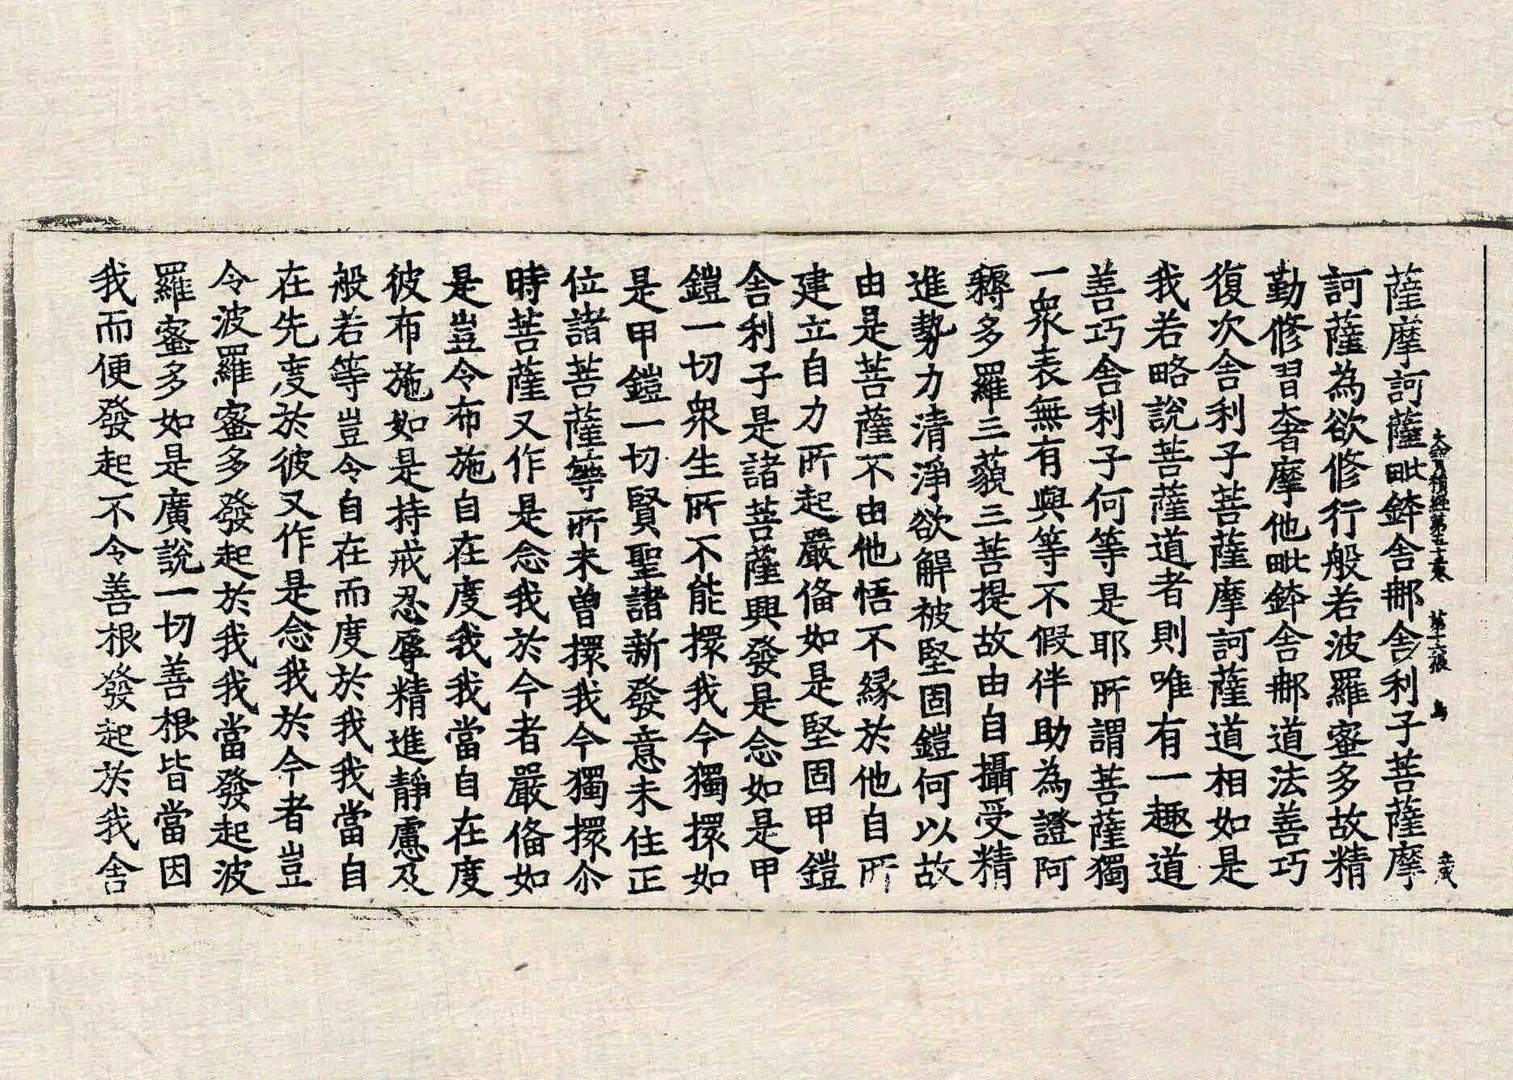 大寶積經第五十三卷 第十六張 鳥
薩摩訶薩毗鉢舍那舍利子菩薩摩
訶薩為欲修行般若波羅蜜多故精
勤修習奢摩他毗鉢舍那道法善巧
復次舍利子菩薩摩訶薩道相如是
我若略說菩薩道者則唯有一趣道
善巧舍利子何等是耶所謂菩薩獨
一衆表無有與等不假伴助為證阿
耨多羅三藐三菩提故由自攝受精
進勢力清淨欲解被堅固鎧何以故
由是菩薩不由他悟不緣於他自所
建立自力所起嚴俻如是堅固甲鎧
舍利子是諸菩薩興發是念如是甲
鎧一切衆生所不能擐我今獨擐如
是甲鎧一切賢聖諸新發意未住正
位諸菩薩等所未曽擐我今獨擐尒
時菩薩又作是念我於今者嚴俻如
是豈令布施自在度我我當自在度
彼布施如是持戒忍辱精進靜慮及
般若等豈令自在而度於我我當自
在先度於彼又作是念我於今者豈
令波羅蜜多發起於我我當發起波
羅蜜多如是廣說一切善根皆當因
我而便發起不令善根發起於我舍